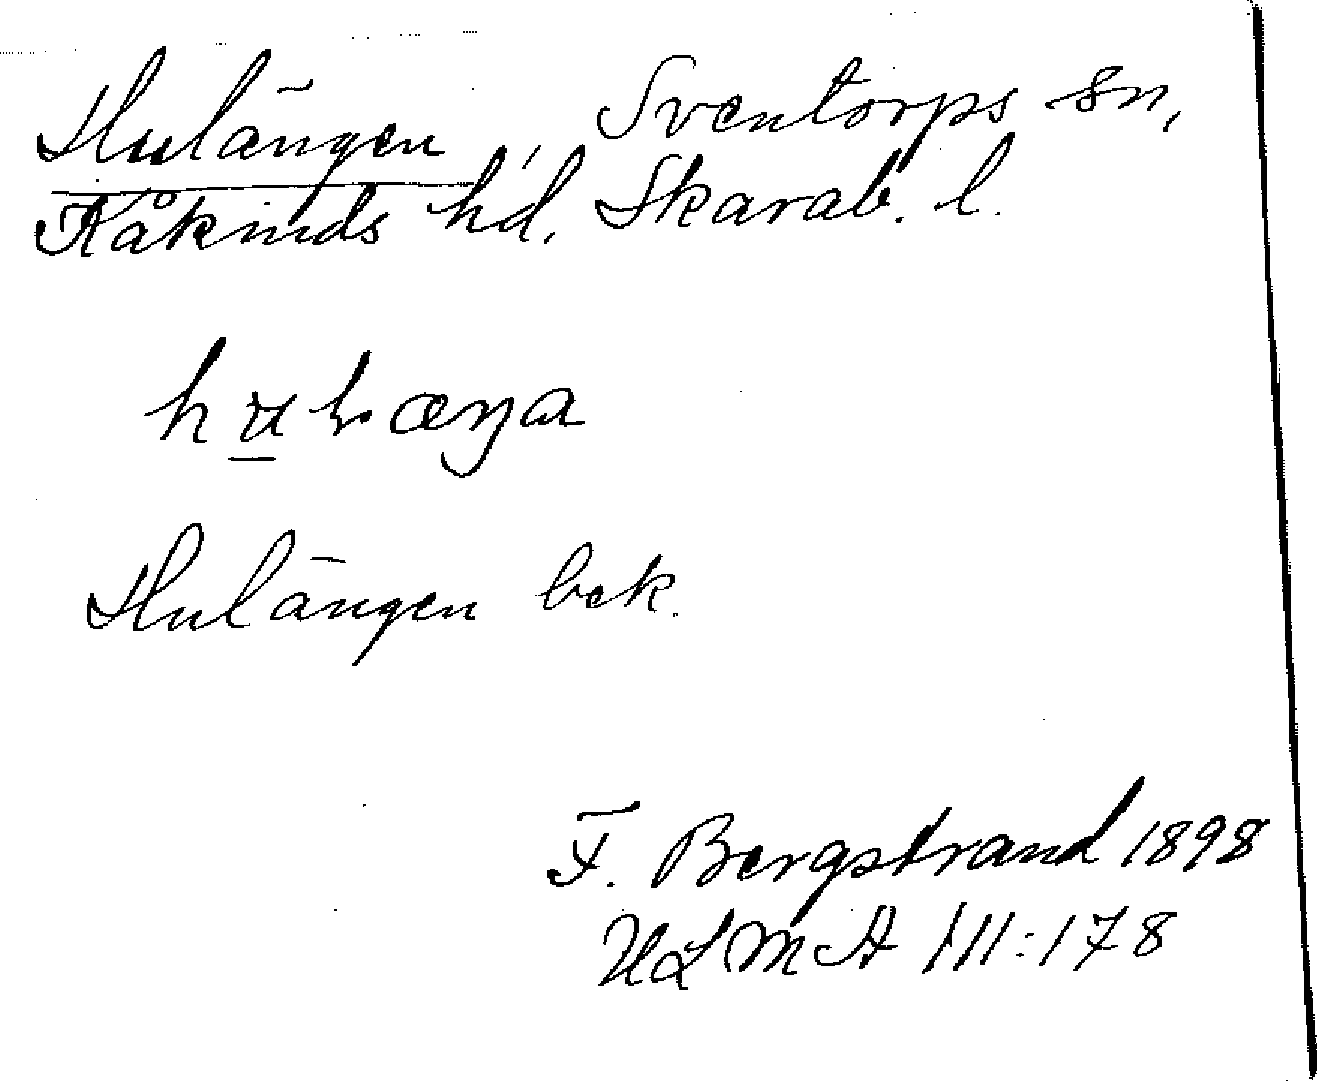 Hulängen, Sventorps sn,
Kåkinds hd, Skarab. l.
Hulängen bek.
F. Bergstrand 1898
ULMA 111:178